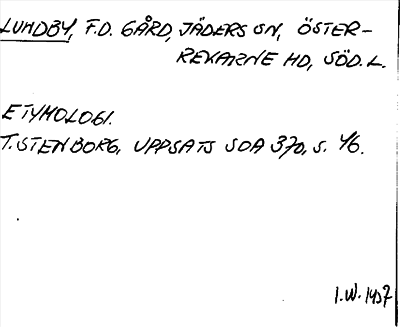 LUNDBY, F.D. GÅRD, JÄDERS SN, ÖSTER-
REKARNE HD, SÖD. L.
ETYMOLOGI.
T. STENBORG, UPPSATS SOA 370, S. 46.
I.W. 1957